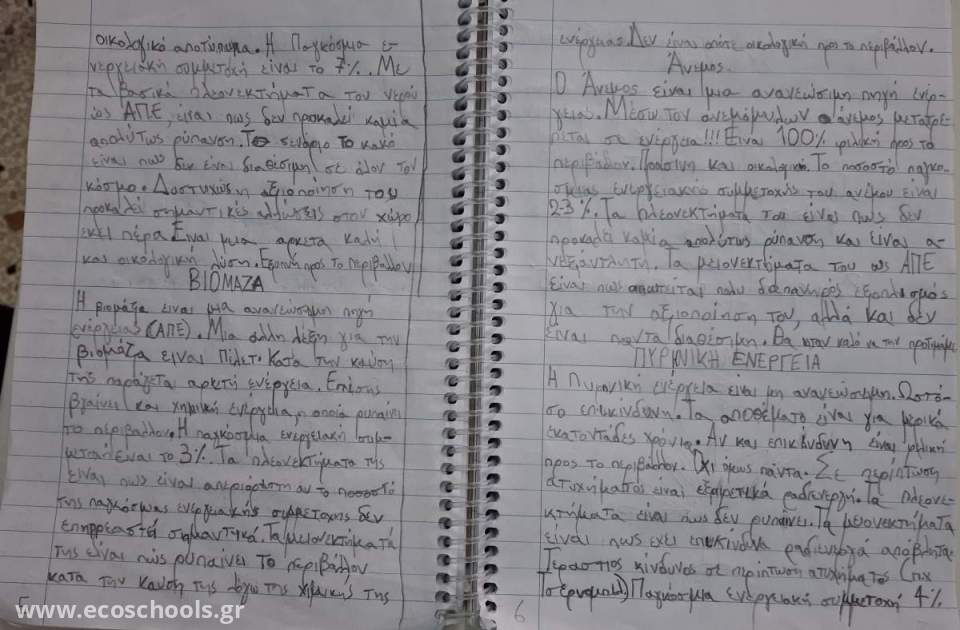 οικολογικό αποτύπωμα. Η Παγκόσμια ε-
νεργειακή συμμετοχή είναι το 7%. Με
τα βασικά πλεονεκτήματα του νερού
ως ΑΠΕ, είναι πως δεν προκαλεί καμία
απολύτως ρύπανση. Το το κακό
είναι πως δεν είναι διαθέσιμη σε όλον τον
κόσμο. Δυστυχώς η αξιοποίηση του
προκαλεί σημαντικές αλλαγές στον χώρο
εκεί πέρα. Είναι μια αρκετά καλή
και οικολογική λύση. προς το περιβάλλον
ΒΙΟΜΑΖΑ
Η βιομάζα είναι μια ανανεώσιμη πηγή
ενέργειας (ΑΠΕ). Μια άλλη λέξη για την
βιομάζα είναι Πίλετ. Κατά την καύση
της παράγεται αρκετή ενέργεια. Επίσης
βγαίνει και χημική ενέργεια, η οποία ρυπαίνει
το περιβάλλον. Η παγκόσμια ενεργειακή συμ-
είναι το 3%. Τα πλεονεκτήματα της
είναι πως είναι απεριόριστη αν το ποσοστό
της παγκόσμιας ενεργειακής συμμετοχής δεν
επηρρεαστεί σημαντικά. Τα μειονεκτήματα
της είναι πώς ρυπαίνει το περιβάλλον
κατα την καύση της λόγω της χημικής της
5
ενέργειας. Δεν είναι οικολογική προς το περιβάλλον.
Άνεμος
Ο Άνεμος είναι μια ανανεώσιμη πηγή ενέρ-
γειας. Μέσω των ανεμόμυλων ο άνεμος μετατρέ-
πεται σε ενέργεια!!! Είναι 100% φιλική προς το
περιβάλλον. Πράσινη και οικολογική. Το ποσοστό παγκο-
σμιας ενεργειακής συμμετοχής του ανέμου είναι
23%. Τα πλεονεκτήματα του είναι πως δεν
προκαλεί καμία απολύτως ρύπανση και είναι α-
νεξάντλητη. Τα μειονεκτήματα του ως ΑΠΕ
είναι πως απαιτείται πολυ δαπανηρός εξοπλισμός
για την αξιοποίηση του, αλλά και δεν
είναι πάντα διαθέσιμη. Θα ηταν καλό να την προτιμάμε
ΠΥΡΗΝΙΚΗ ΕΝΕΡΓΕΙΑ
Η Πυρηνική ενέργεια είναι μη ανανεώσιμη. Ωστό-
σο επικίνδυνη. Τα αποθέματα είναι για μερικά
εκατοντάδες χρόνια. Αν και επικίνδυνη είναι φιλική
προς το περιβάλλον. Όχι όμως πάντα. Σε περίπτωση
ατυχήματος είναι εξαιρετικά ραδιενεργή. Τα πλεονε-
κτήματα είναι πως δεν ρυπαίνει. Τα μειονεκτήματα
είναι πως εχει επικίνδυνα ραδιενεργά απόβλητα.
Τεράστιος κίνδυνος σε περίπτωση ατυχήματος (πχ
Τσέρνομπιλ) Παγκόσμια ενεργειακή συμμετοχή 4%
6
www.ecoschools.gr